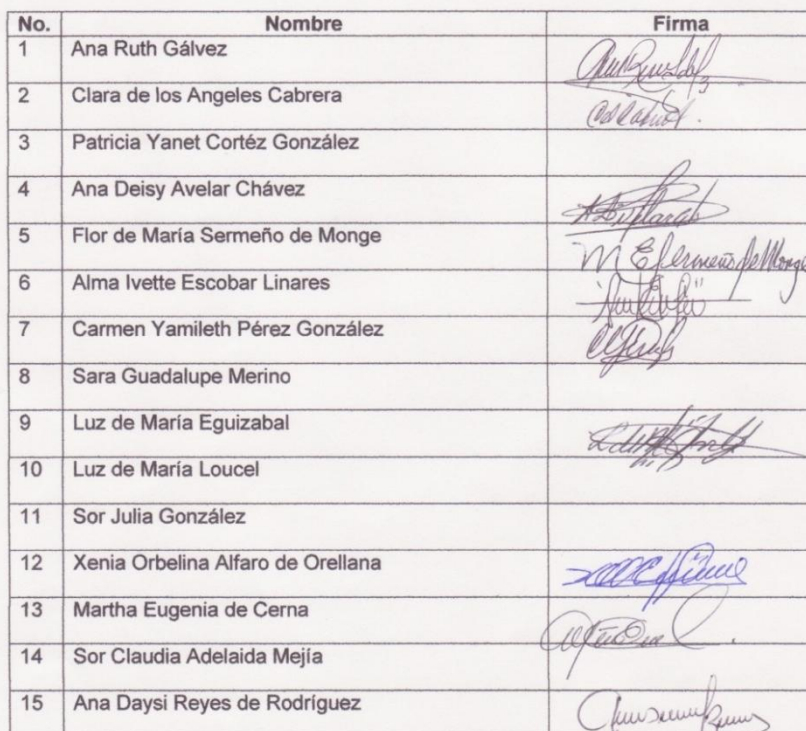 No. Nombre Firma
1 Ana Ruth Gálvez
2 Clara de los Angeles Cabrera
3 Patricia Yanet Cortéz González
4 Ana Deisy Avelar Chávez
5 Flor de María Sermeño de Monge
6 Alma Ivette Escobar Linares
7 Carmen Yamileth Pérez González
8 Sara Guadalupe Merino
9 Luz de María Eguizabal
10 Luz de María Loucel
11 Sor Julia González
12 Xenia Orbelina Alfaro de Orellana
13 Martha Eugenia de Cerna
14 Sor Claudia Adelaida Mejía
15 Ana Daysi Reyes de Rodríguez